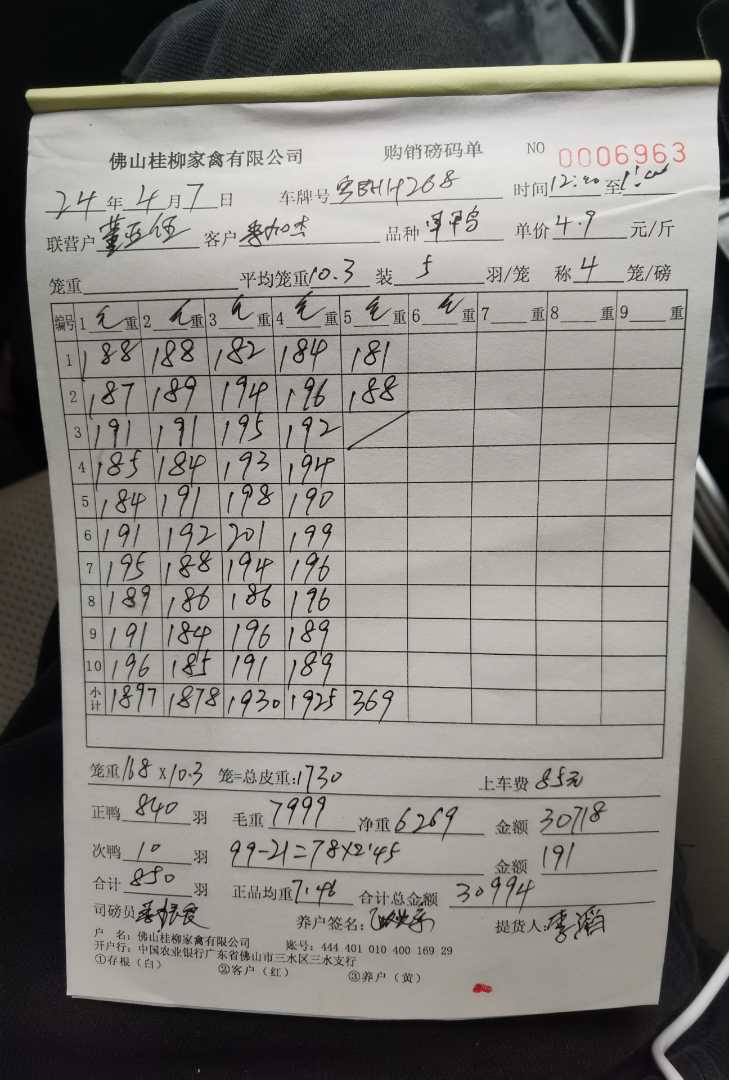 佛山桂柳家禽有限公司 购销磅码单 NO 0006963
24年4月7日 车牌号 粤BH4268 时间 12: 至 1:
联营户 董亚伍 客户 季加杰 品种 单价 4.9 元/斤
笼重 平均笼重 10.3 装 5 羽/笼 称 4 笼/磅
编号 1 毛重 2 毛重 3 毛重 4 毛重 5 毛重 6 毛重 7 重 8 重 9 重
1 188 188 182 184 181
2 187 189 194 196 188
3 191 191 195 192
4 185 184 193 194
5 184 191 198 190
6 191 192 201 199
7 195 188 194 196
8 189 186 186 196
9 191 184 196 189
10 196 185 191 189
小计 1897 1878 1930 1925 369
笼重 168 x10.3 笼=总皮重: 1730 上车费 85元
正鸭 840 羽 毛重 7999 净重 6269 金额 30718
次鸭 10 羽 99-21=78×2.45 金额 191
合计 850 羽 正品均重 7.46 合计总金额 30994
司磅员 养户签名: 提货人: 李滔
户 名: 佛山桂柳家禽有限公司 账号: 444 401 010 400 169 29
开户行: 中国农业银行广东省佛山市三水区三水支行
①存根(白) ②客户(红) ③养户(黄)